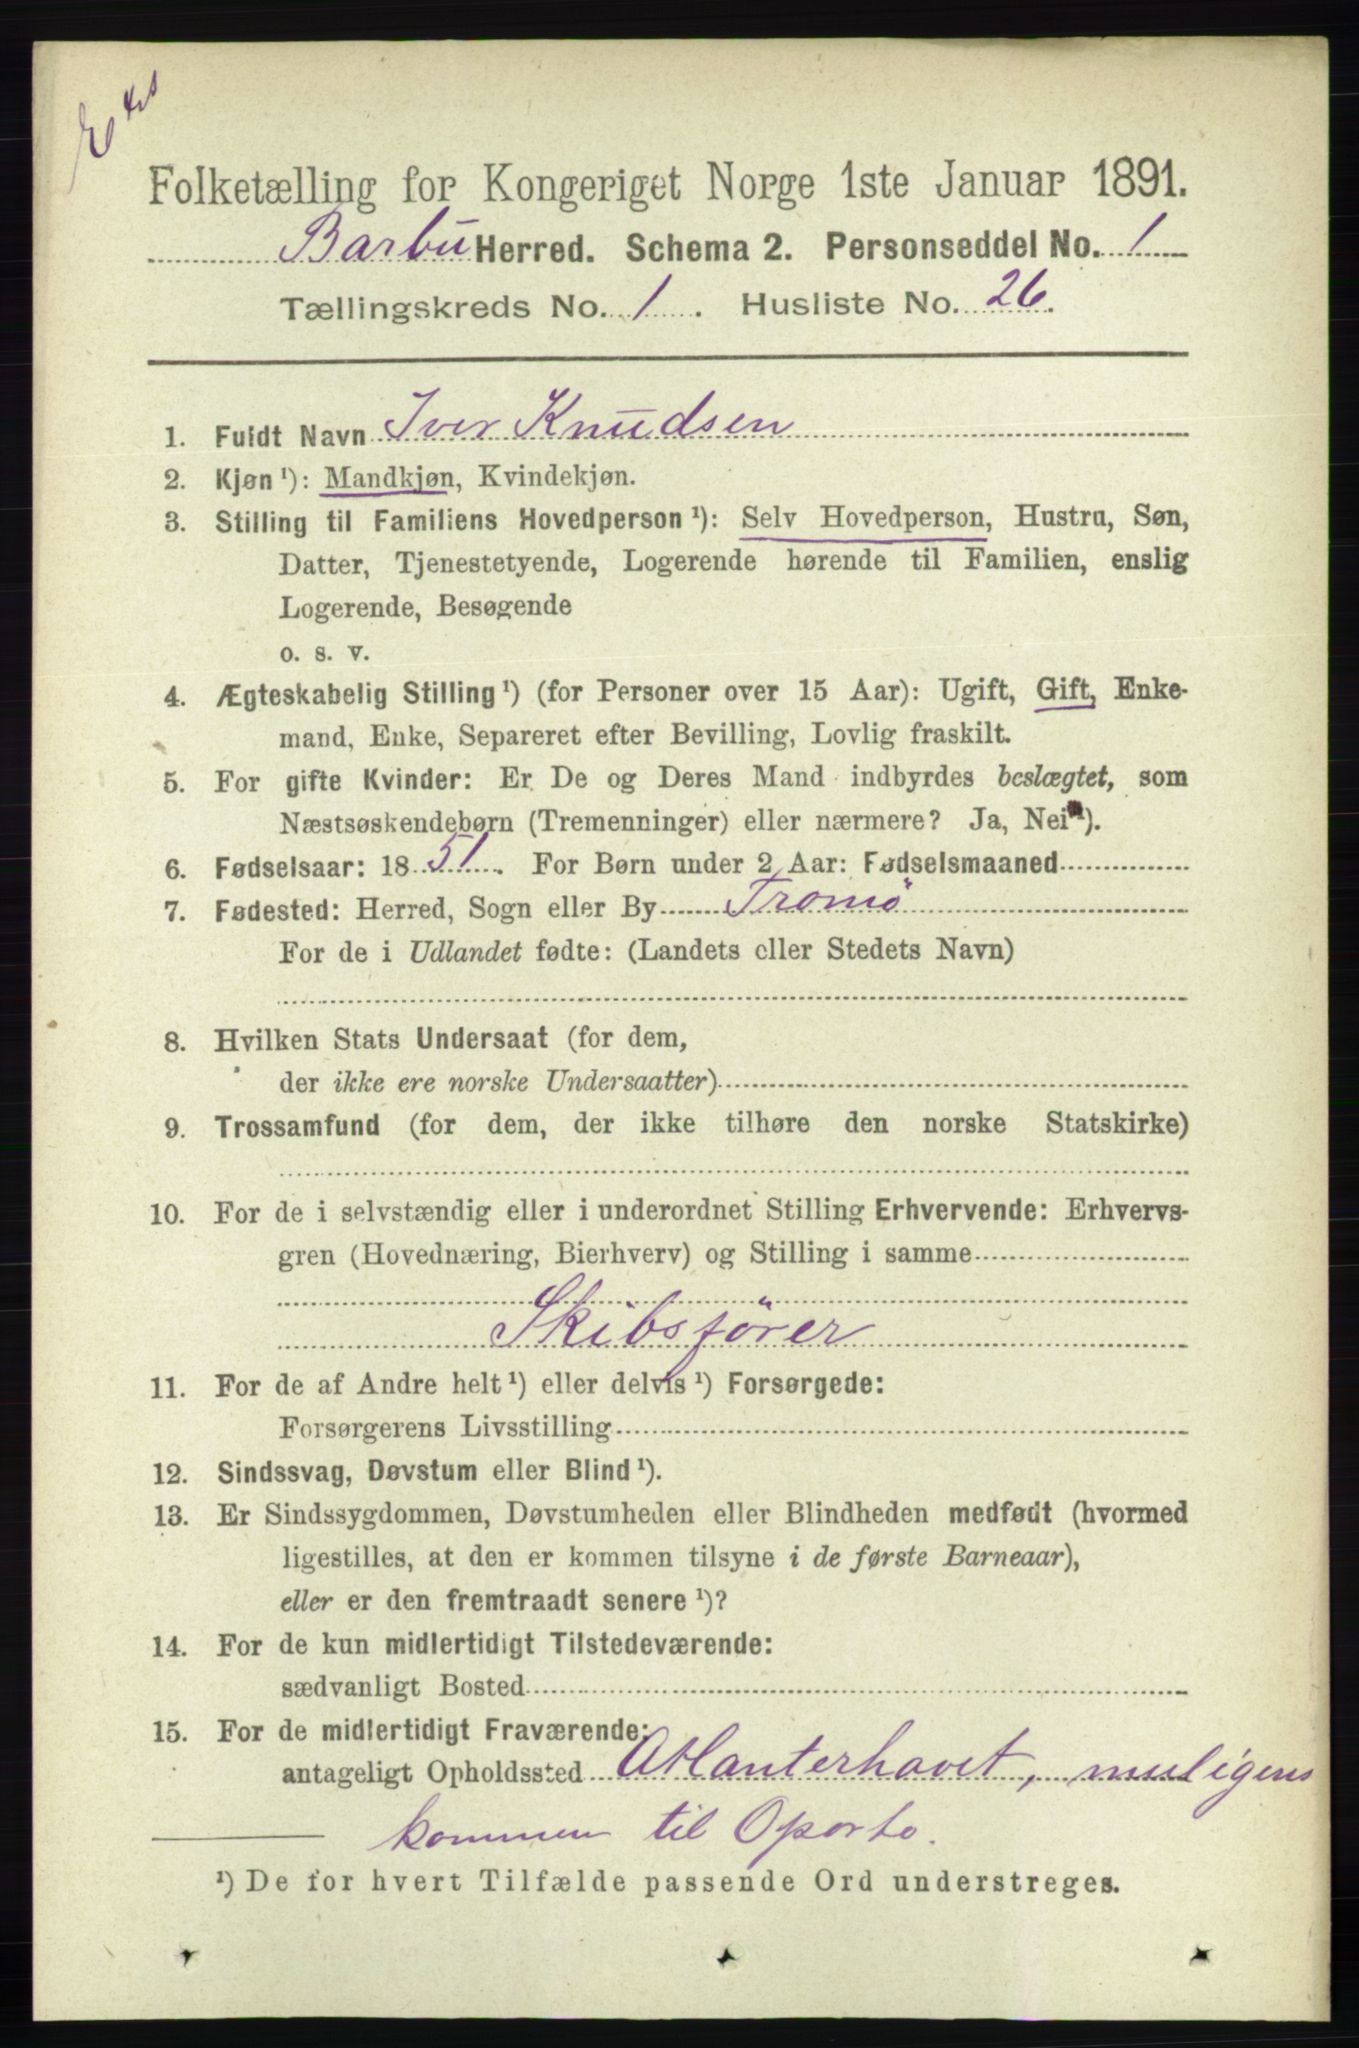 Folketælling for Kongeriget Norge 1ste Januar 1891.
Barbu Herred. Schema 2. Personseddel No. 1
Tællingskreds No. 1. Husliste No. 26.
1. Fuldt Navn Iver Knudsen
2. Kjøn ¹): Mandkjøn, Kvindekjøn.
3. Stilling til Familiens Hovedperson ¹): Selv Hovedperson, Hustru, Søn,
Datter, Tjenestetyende, Logerende hørende til Familien, enslig
Logerende, Besøgende
o. s. v.
4. Ægteskabelig Stilling ¹) (for Personer over 15 Aar): Ugift, Gift, Enke-
mand, Enke, Separeret efter Bevilling, Lovlig fraskilt.
5. For gifte Kvinder: Er De og Deres Mand indbyrdes beslægtet, som
Næstsøskendebørn (Tremenninger) eller nærmere? Ja, Nei ¹).
6. Fødselsaar: 1851. For Børn under 2 Aar: Fødselsmaaned
7. Fødested: Herred, Sogn eller By Tromö
For de i Udlandet fødte: (Landets eller Stedets Navn)
8. Hvilken Stats Undersaat (for dem,
der ikke ere norske Undersaatter)
9. Trossamfund (for dem, der ikke tilhøre den norske Statskirke)
10. For de i selvstændig eller i underordnet Stilling Erhvervende: Erhvervs-
gren (Hovednæring, Bierhverv) og Stilling i samme
Skibsförer
11. For de af Andre helt ¹) eller delvis ¹) Forsørgede:
Forsørgerens Livsstilling
12. Sindssvag, Døvstum eller Blind ¹).
13. Er Sindssygdommen, Døvstumheden eller Blindheden medfødt (hvormed
ligestilles, at den er kommen tilsyne i de første Barneaar),
eller er den fremtraadt senere ¹)?
14. For de kun midlertidigt Tilstedeværende:
sædvanligt Bosted
15. For de midlertidigt Fraværende:
antageligt Opholdssted Atlanterhavet, muligens
kommen til Oporto.
¹) De for hvert Tilfælde passende Ord understreges.